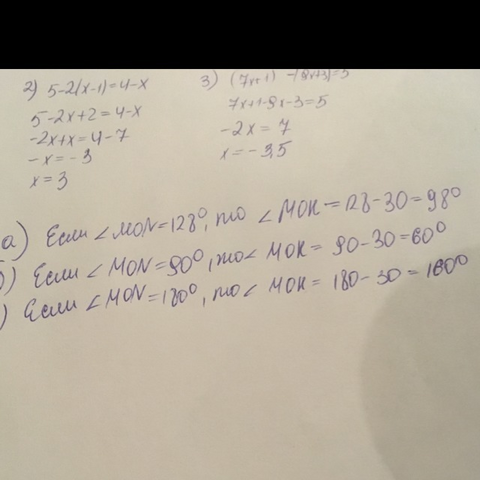 2) 5-2(x-1)=4-x
5-2x+2=4-x
-2x+x=4-7
-x=-3
x=3
3) (7x+1)-(9x+3)=5
7x+1-9x-3=5
-2x=7
x=-3,5
а) Если ∠MON=128°, то ∠MOK=128-30=98°
) Если ∠MON=90°, то∠MOK=90-30=60°
) Если ∠MON=180°, то∠MOK=180-30=160°